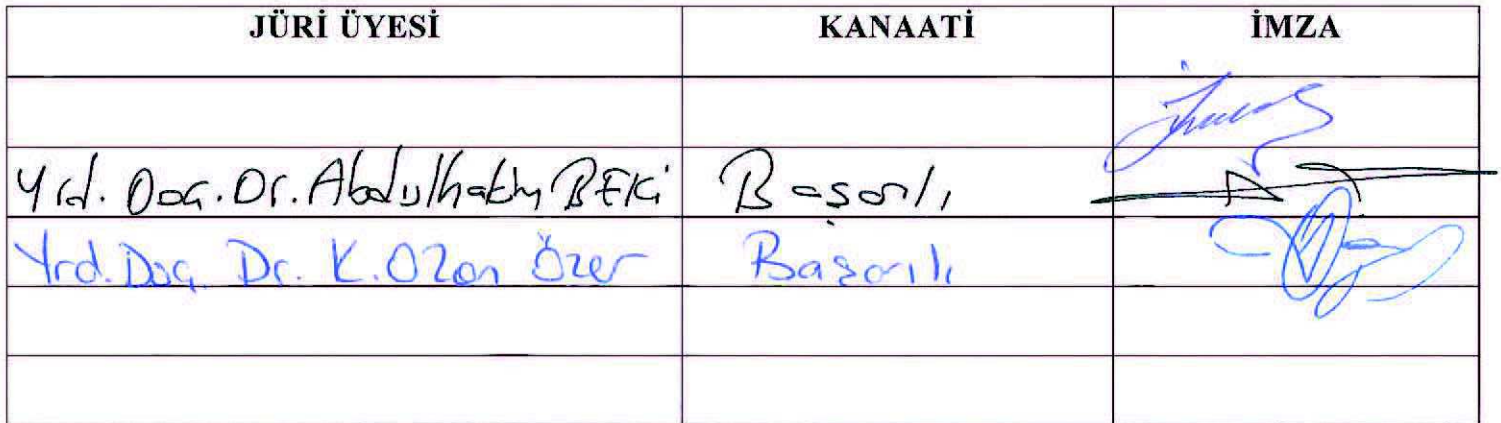 JÜRİ ÜYESİ KANAATİ İMZA
Yrd. Doç. Dr. Abdulhakim BEKİ Başarılı
Yrd. Doç. Dr. K. Ozan Özer Başarılı